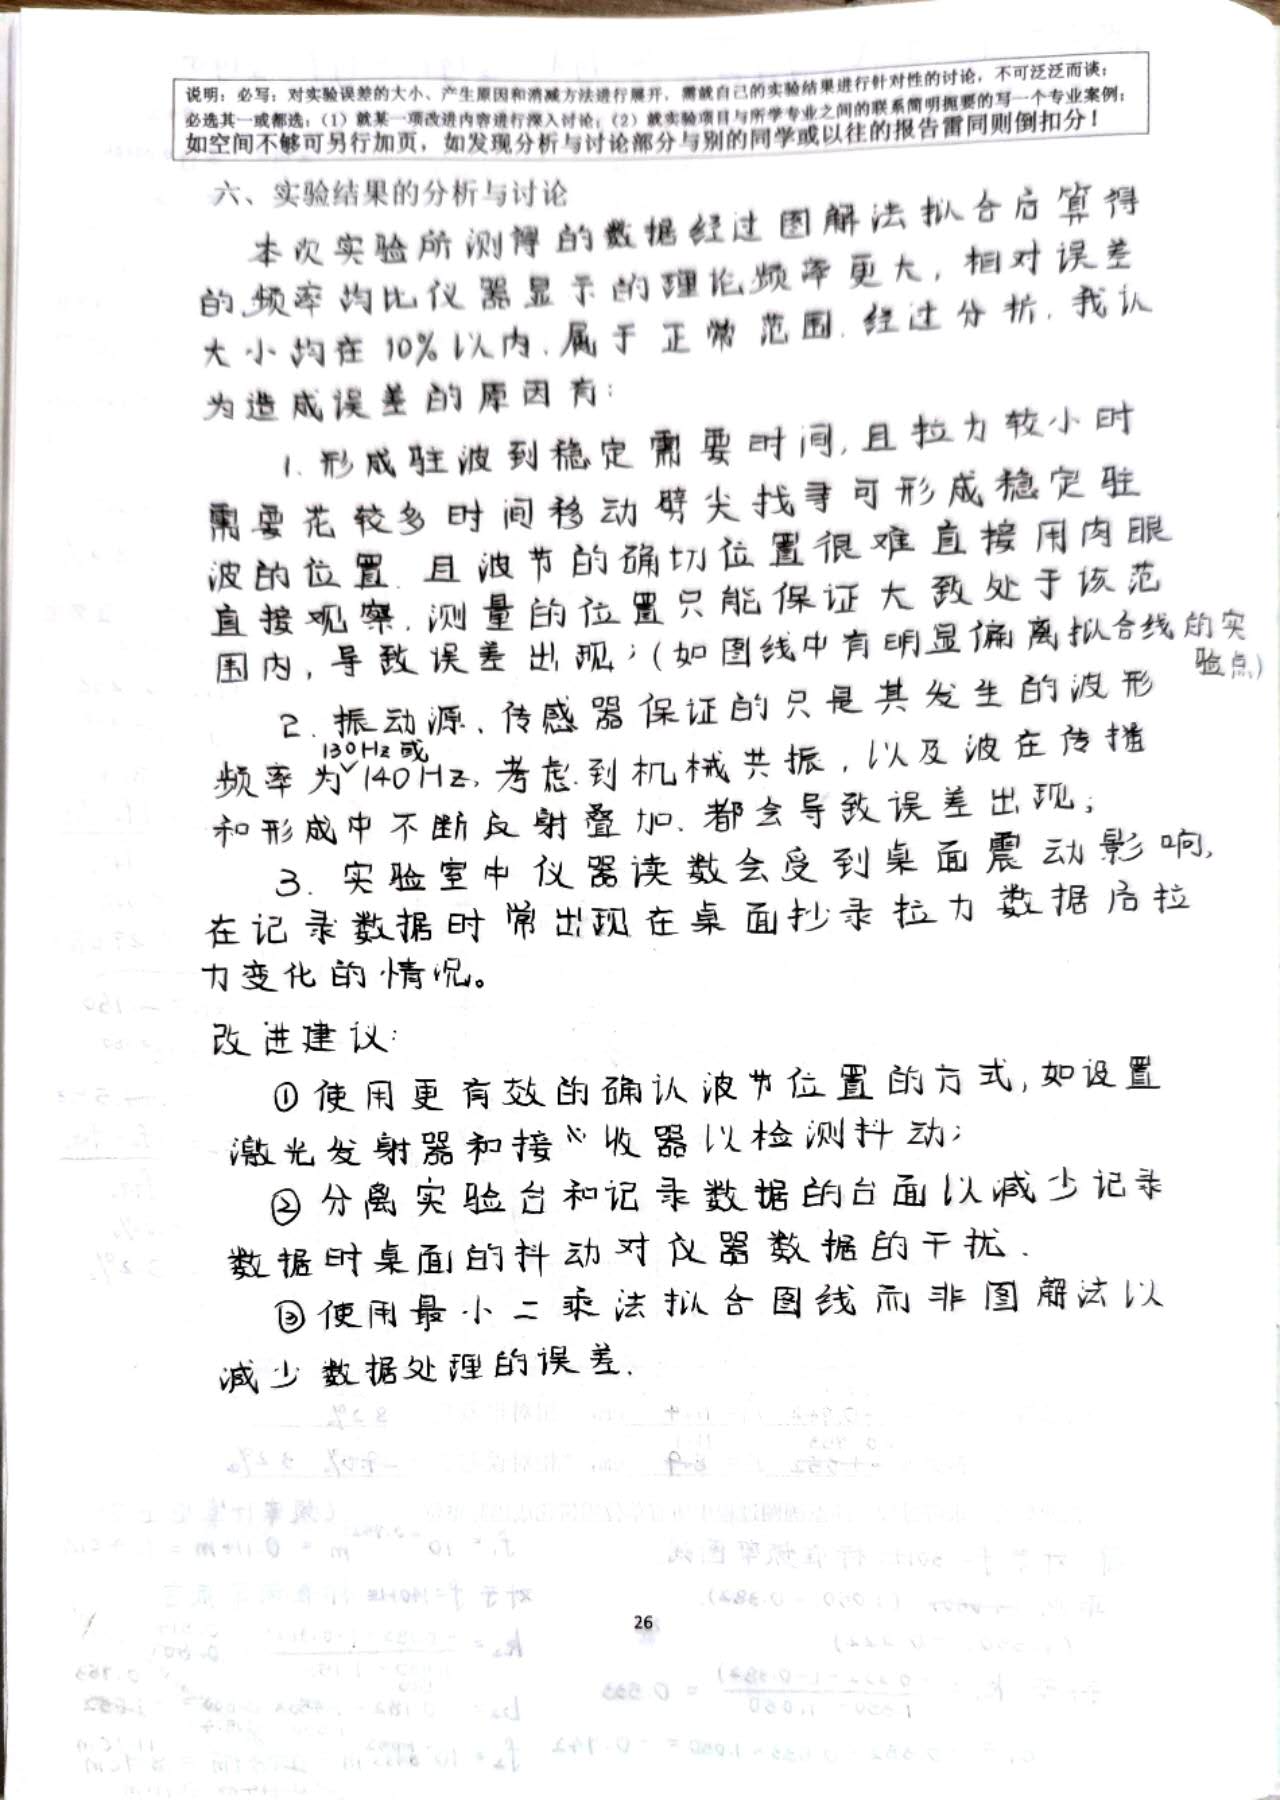 说明：必写：对实验误差的大小、产生原因和消减方法进行展开，需就自己的实验结果进行针对性的讨论，不可泛泛而谈；
必选其一或都选：（1）就某一项改进内容进行深入讨论；（2）就实验项目与所学专业之间的联系简明扼要的写一个专业案例；
如空间不够可另行加页，如发现分析与讨论部分与别的同学或以往的报告雷同则倒扣分！
六、实验结果的分析与讨论
本次实验所测得的数据经过图解法拟合后算得
的频率均比仪器显示的理论频率更大，相对误差
大小均在10%以内、属于正常范围.经过分析.我认
为造成误差的原因有：
1.形成驻波到稳定需要时间，且拉力较小时
需要花较多时间移动劈尖找寻可形成稳定驻
波的位置.且波节的确切位置很难直接用肉眼
直接观察.测量的位置只能保证大致处于该范
围内，导致误差出现；（如图线中有明显偏离拟合线的实
验点）
2.振动源、传感器保证的只是其发生的波形
130Hz或
频率为140Hz，考虑到机械共振，以及波在传播
和形成中不断反射叠加、都会导致误差出现；
3.实验室中仪器读数会受到桌面震动影响，
在记录数据时常出现在桌面抄录拉力数据后拉
力变化的情况。
改进建议：
①使用更有效的确认波节位置的方式，如设置
激光发射器和接收器以检测抖动；
②分离实验台和记录数据的台面以减少记录
数据时桌面的抖动对仪器数据的干扰.
③使用最小二乘法拟合图线而非图解法以
减少数据处理的误差.
26